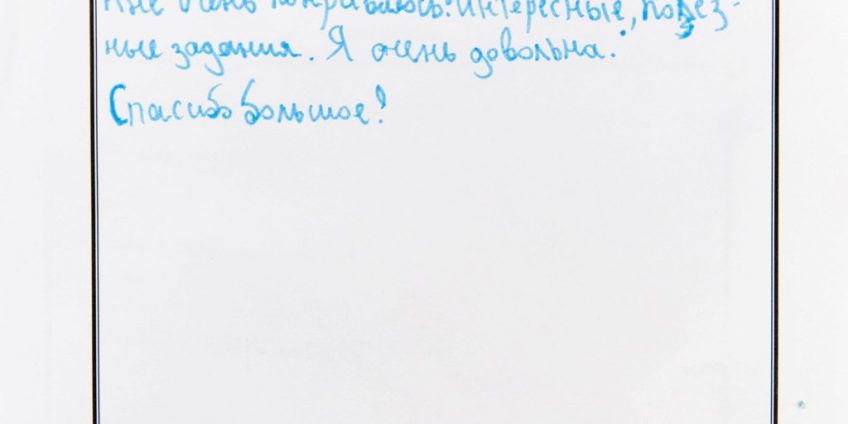 Мне очень понравилось! Интересные, полез-
ные задания. Я очень довольна.
Спасибо большое!